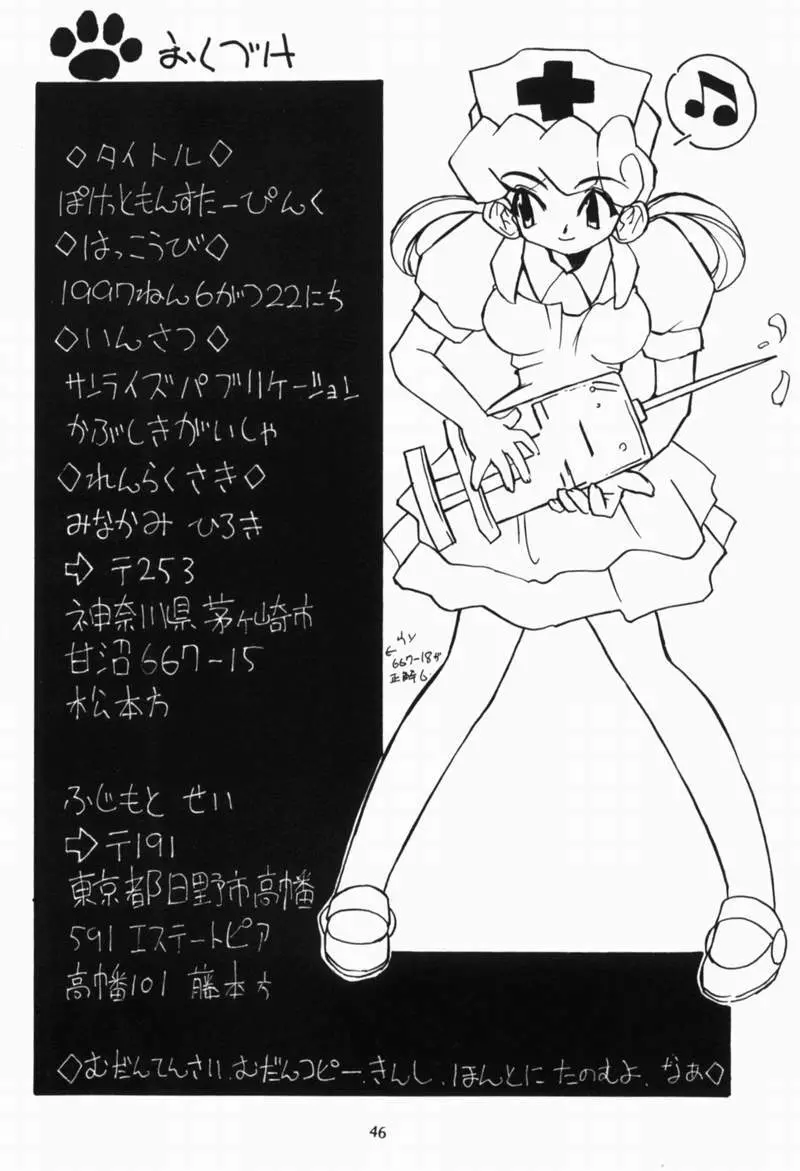 おくづけ
◇タイトル◇
ぽけっともんすたーぴんく
◇はっこうび◇
1997ねん6がつ22にち
◇いんさつ◇
サンライズパブリケーション
かぶしきがいしゃ
◇れんらくさき◇
みなかみ ひろき
⇨〒253
神奈川県茅ヶ崎市
甘沼667-15
松本方
667-18が
ふじもと せい
⇨〒191
東京都日野市高幡
591 エステートピア
高幡101 藤本方
◇むだんてんさい.むだんコピー.きんし.ほんとに たのむよ.なあ◇
46